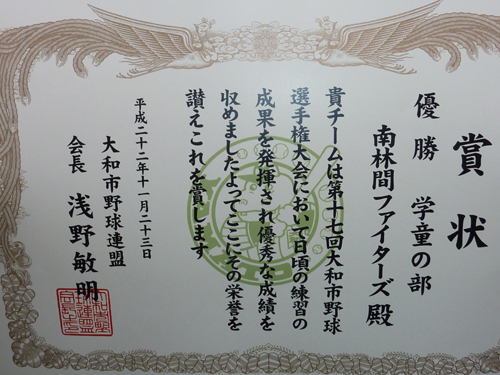 賞状
優勝 学童の部
南林間ファイターズ殿
貴チームは第十七回大和市野球
選手権大会において日頃の練習の
成果を発揮され優秀な成績を
収めましたよってここにその栄誉を
讃えこれを賞します
平成二十二年十一月二十三日
大和市野球連盟
会長 浅野敏明